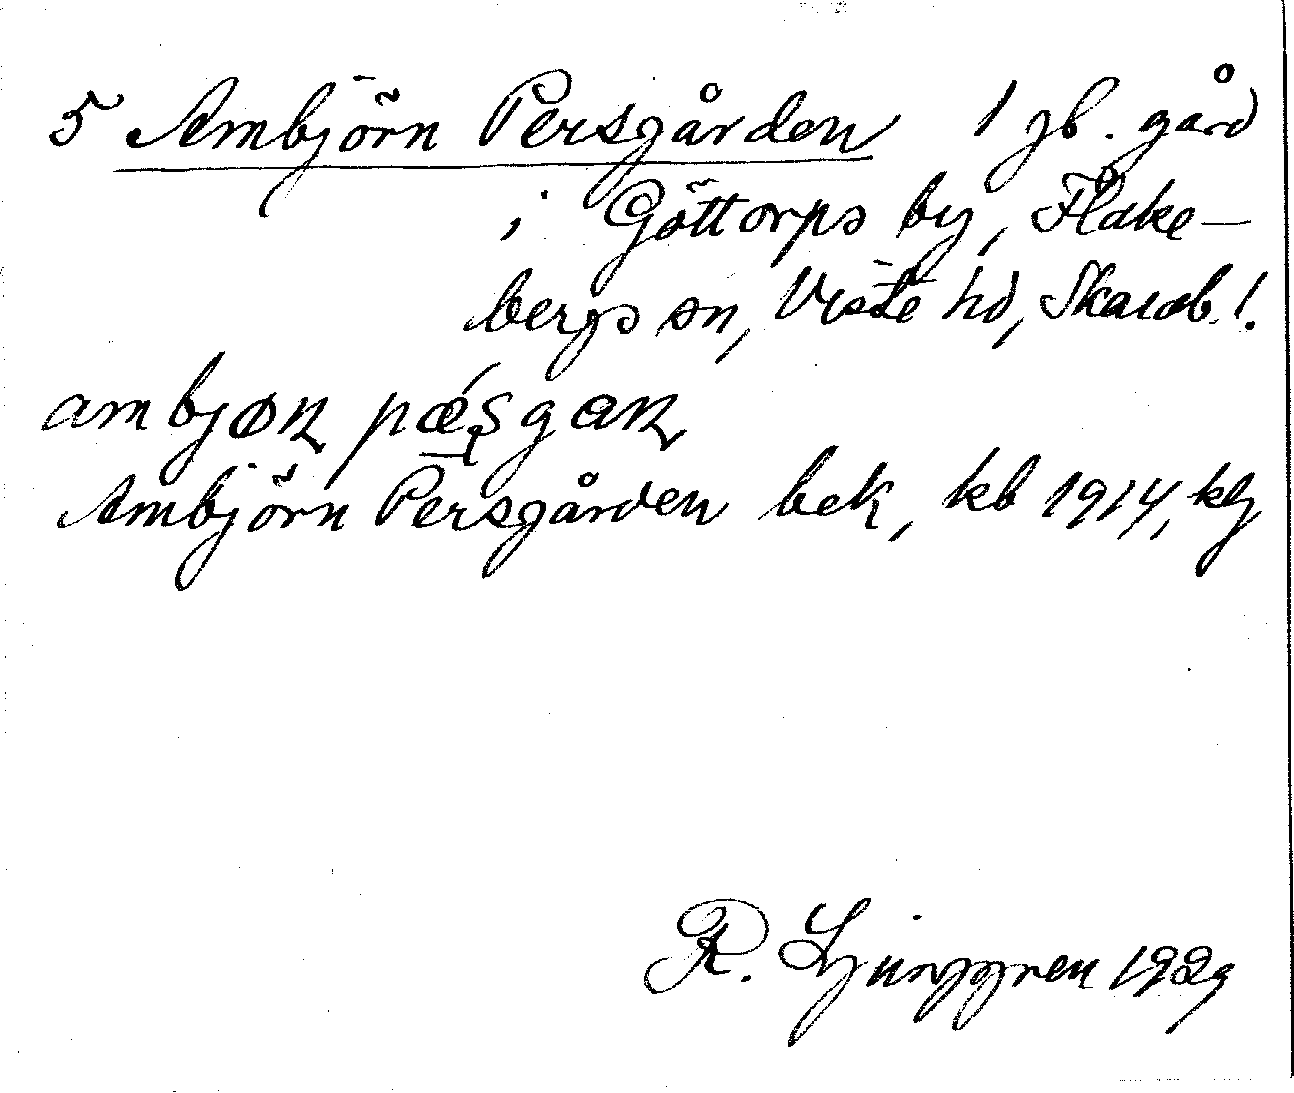 5 Ambjörn Persgården 1 jb. gård
i Göttorps by, Flake-
bergs sn, Viste hd, Skarab. l.
ambjøɳ pǽ̣ʂgaɳ
Ambjörn Persgården bek, kb 1914, klj
R. Ljunggren 1929